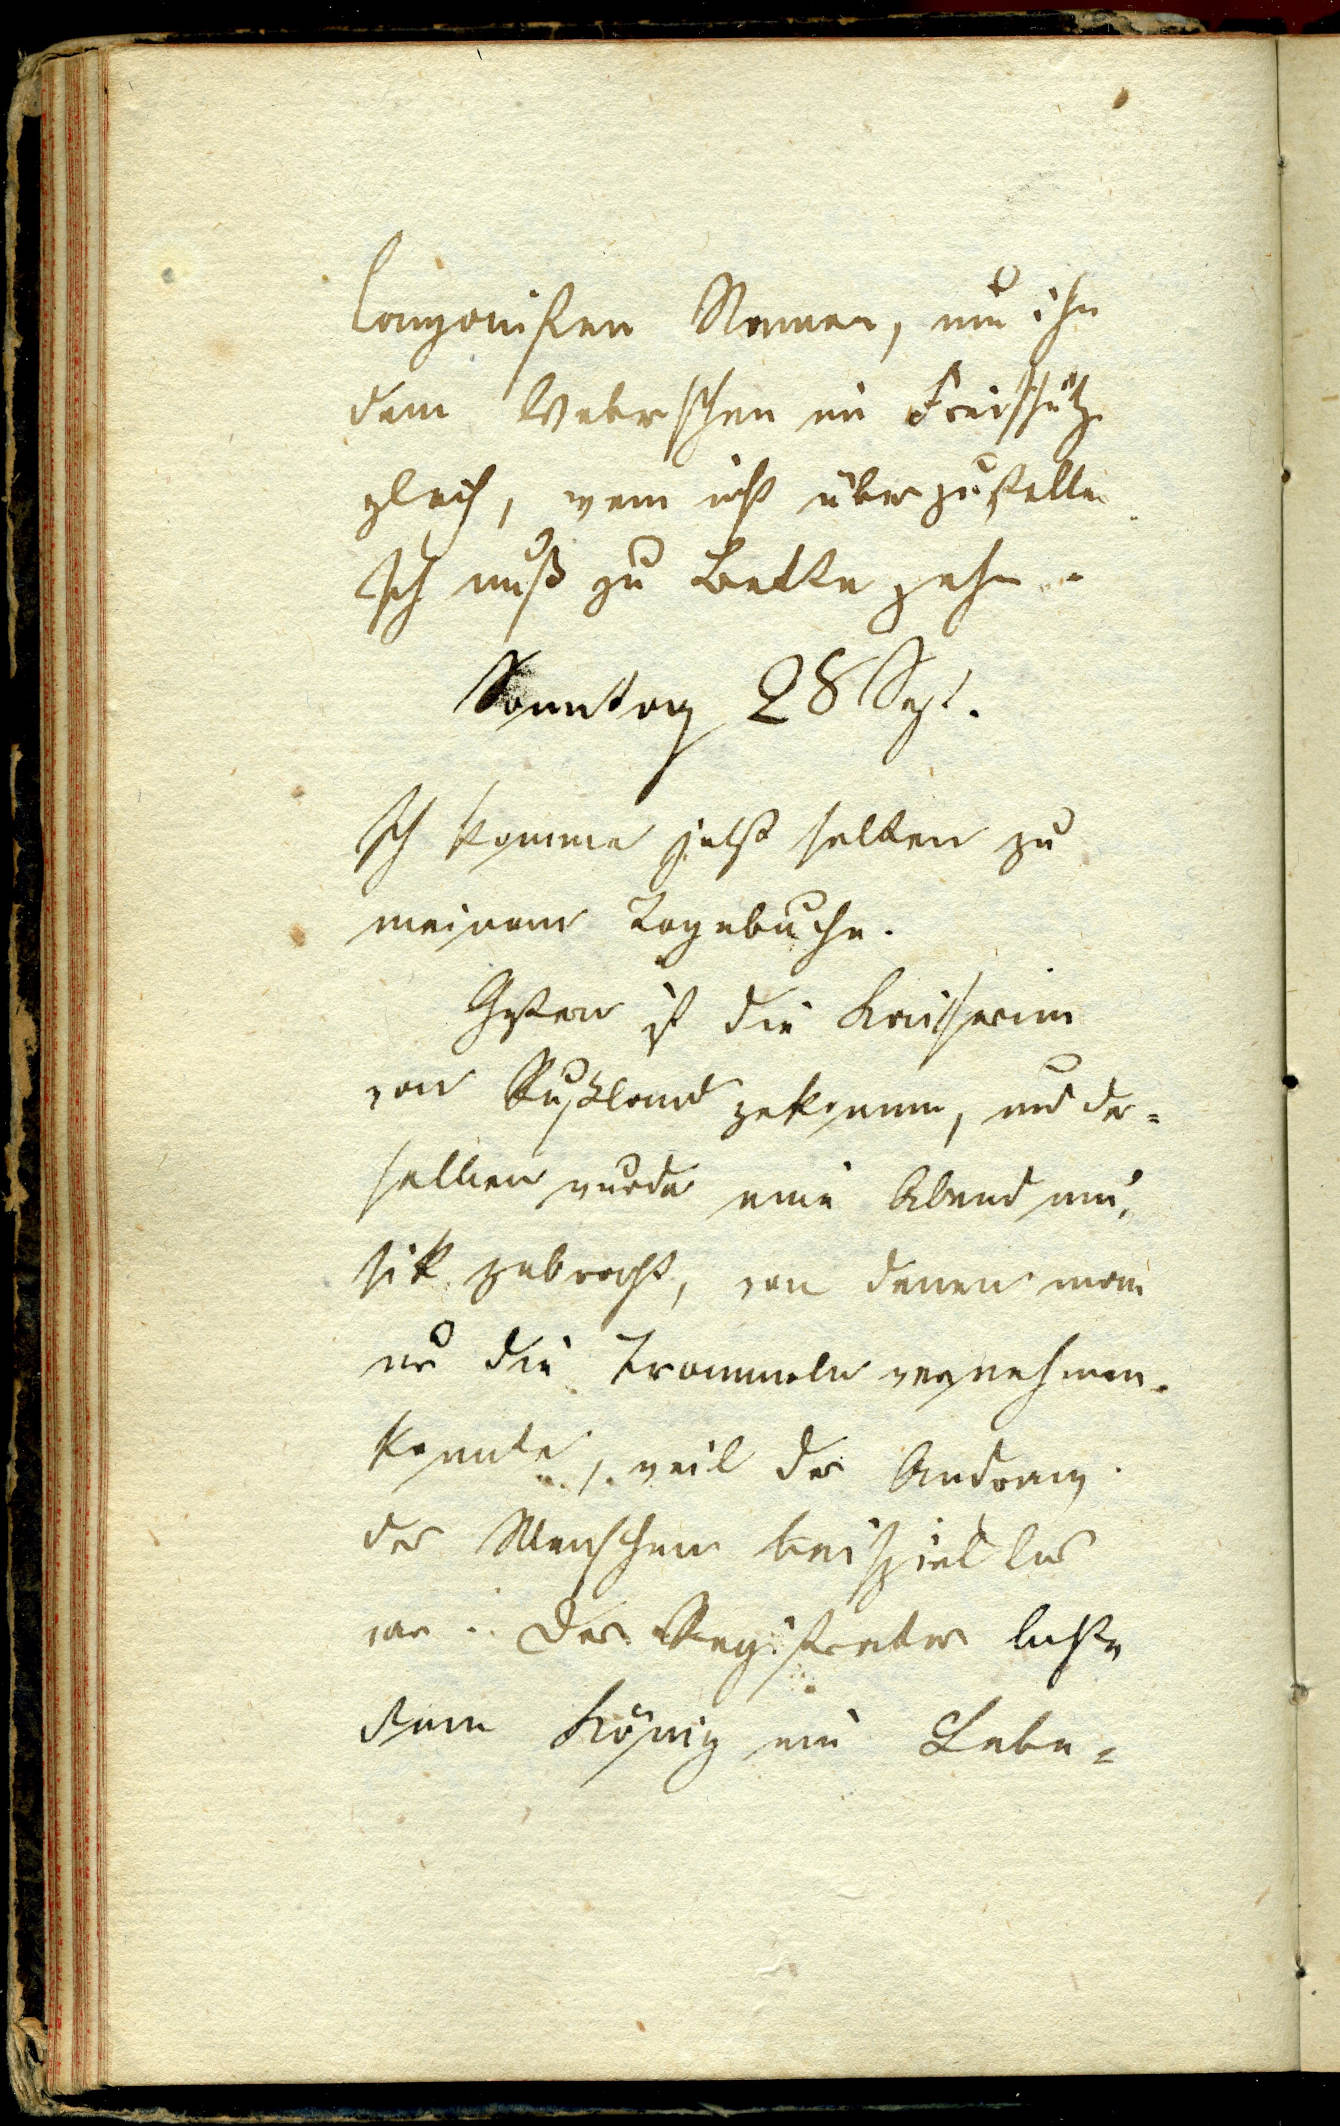 Componisten Namen, um ihn
dem Weberschen im Freischütz
gleich, wenn nicht überzustellen
Ich muß zu Bette gehn.
Sonntag 28 Sept.
Ich komme jetzt selten zu
meinem Tagebuche.
Gestern ist die Kaiserinn
von Rußland gekommen, und der=
selben wurde eine Abendmu=
sik gebracht, von denen man
nur die Trommeln vernehmen
konnte, weil der Andrang
der Menschen beispiellos
war. Der Registrator
dem König ein Lebe=